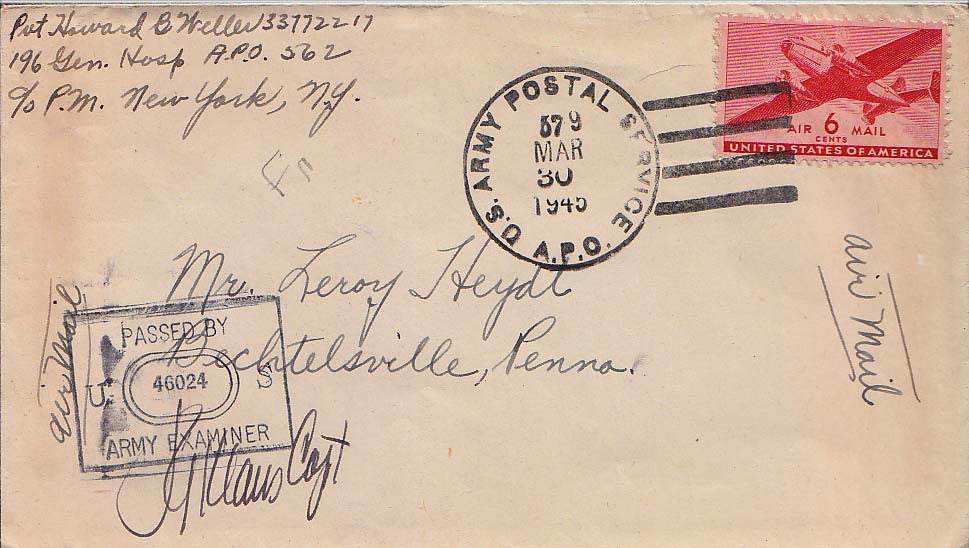 Pvt Howard E Weller 33772217
196 Gen. Hosp A.P.O. 562
c/o P.M. New York, N.Y.
U.S. ARMY POSTAL SERVICE
579
MAR
30
1945
A.P.O.
AIR 6 MAIL
CENTS
UNITED STATES OF AMERICA
Mr. Leroy Heydt
Bechtelsville, Penna.
air Mail
air Mail
PASSED BY
U 46024 S
ARMY EXAMINER
Klaus Capt